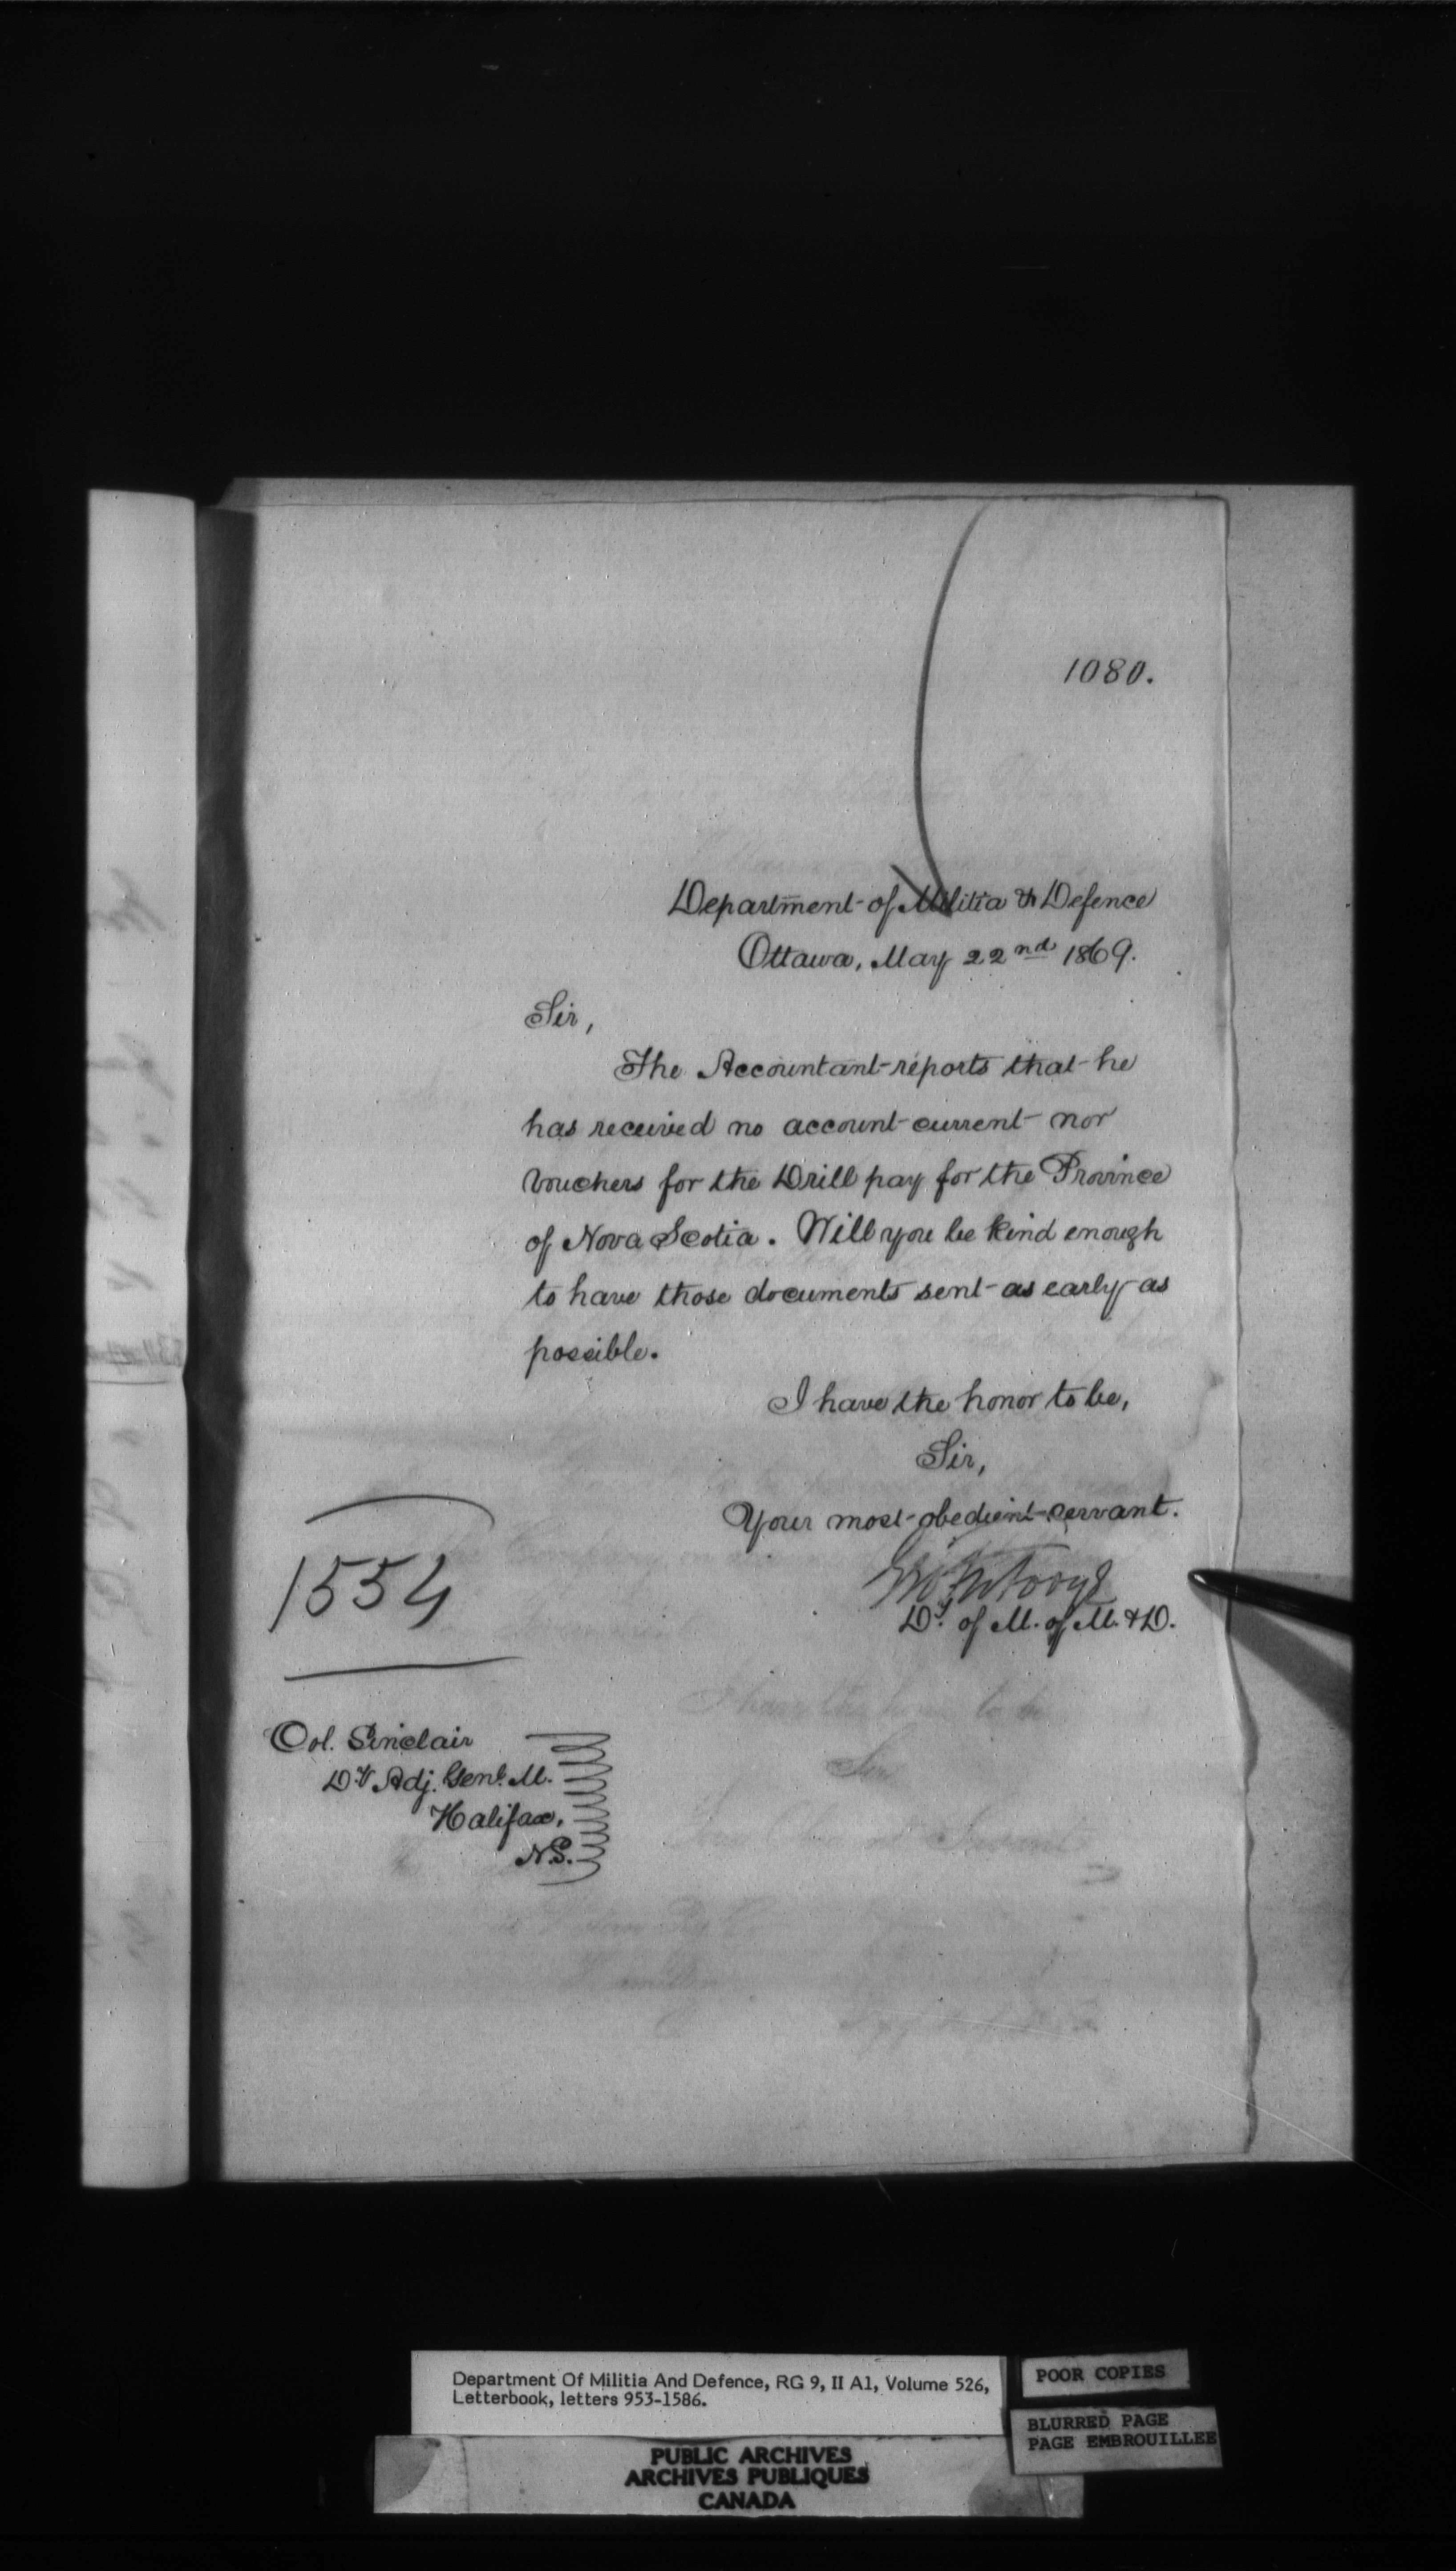 1080.
Department of Militia & Defence
Ottawa, May 22nd 1869.
Sir,
The Accountant reports that he
has received no account current nor
vouchers for the Drill pay for the Province
of Nova Scotia. Will you be kind enough
to have those documents sent as early as
possible.
I have the honor to be,
Sir,
Your most obedient servant.
D. of M. of M. & D.
1554
Col. Sinclair
Dy Adj. Genl. M.
Halifax,
N.S.
Department Of Militia And Defence, RG 9, II A1, Volume 526,
Letterbook, letters 953-1586.
POOR COPIES
BLURRED PAGE
PAGE EMBROUILLEE
PUBLIC ARCHIVES
ARCHIVES PUBLIQUES
CANADA